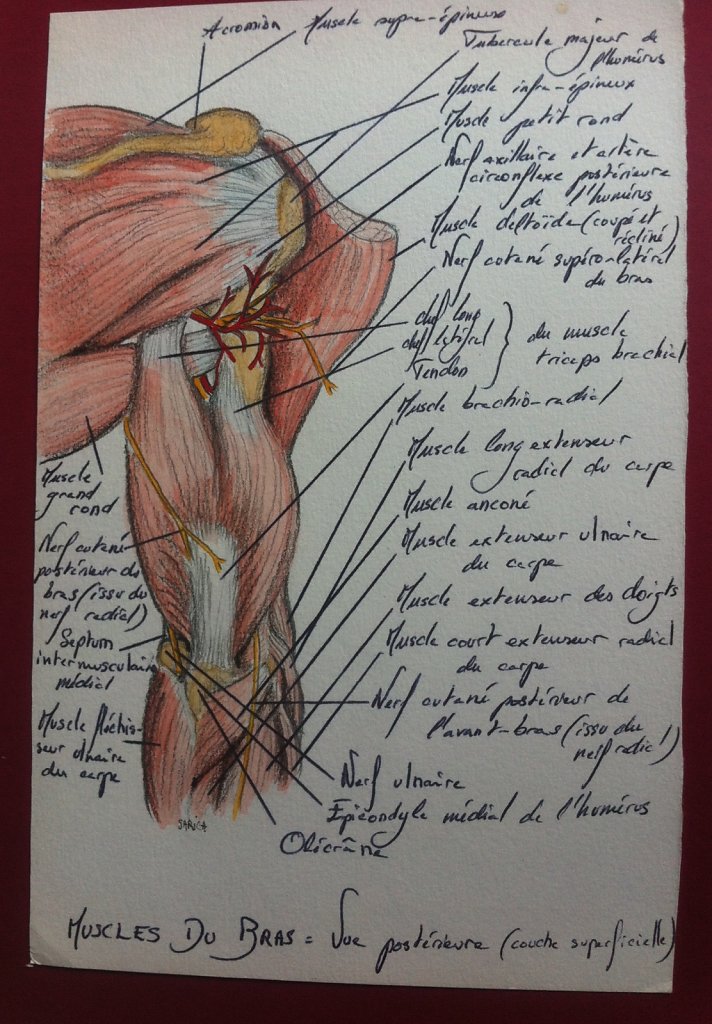 Acromion
Muscle supra-épineux
Tubercule majeur de
l'humérus
Muscle infra-épineux
Muscle petit rond
Nerf axillaire et artère
circonflexe postérieure
de l'humérus
Muscle deltoïde (coupé et
récliné)
Nerf cutané supéro-latéral
du bras
chef long
chef latéral
Tendon
du muscle
triceps brachial
Muscle brachio-radial
Muscle long extenseur
radial du carpe
Muscle anconé
Muscle extenseur ulnaire
du carpe
Muscle extenseur des doigts
Muscle court extenseur radial
du carpe
Nerf cutané postérieur de
l'avant-bras (issu du
nerf radial)
Nerf ulnaire
Epicondyle médial de l'humérus
Olécrâne
Muscle
grand
rond
Nerf cutané
postérieur du
bras (issu du
nerf radial)
Septum
intermusculaire
médial
Muscle fléchis-
seur ulnaire
du carpe
SARICA
MUSCLES DU BRAS = Vue postérieure (couche superficielle)